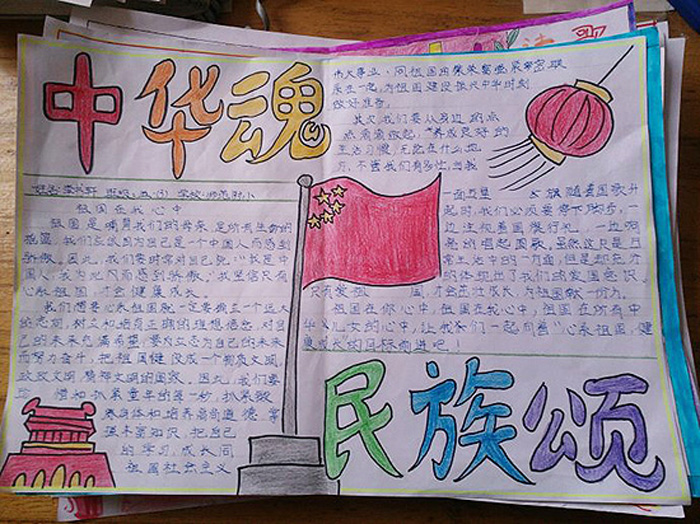 中华魂
祖国在我心中
祖国是哺育我们的母亲，是所有生命的
摇篮，我们应该因为自己是一个中国人而感到
骄傲。因此，我们要时常对自己说：“我是中
国人，我为此而感到骄傲。”我坚信只有
心系祖国，才会健康成长。
我们想要心系祖国就一定要树立一个远大
的志愿，树立和培育正确的理想信念，对自
己的未来充满希望，要为立志为自己的未来
而努力奋斗，把祖国建设成一个物质文明，
政政文明，精神文明的国家。因此，我们要
惜和抓紧童年的每一秒，抓紧锻
身体和培养高尚道德，掌
知识，把自己
的学习，成长同
祖国社会主义
伟大事业，同祖国的繁荣富强紧密联
系在一起，为祖国建设振兴中华时刻
做好准备。
其次，我们要从身边的点
点滴滴做起，养成良好的
生活习惯，无论在什么地
方，不管我们有多忙，当我
一面五星 旗随着国歌升
起时，我们必须要停下脚步，一
边注视着国旗行礼，一边响
亮的唱起国歌，虽然这只是日
常生活中的一方面，但是却充分
的体现出了我们的爱国意识。
只有爱祖国，才会茁壮成长，为祖国献一份力。
祖国在你心中，祖国在我心中，祖国在所有中
华儿女的心中，让我们一起向着“心系祖国，健
康成长”的目标前进吧！
民族颂